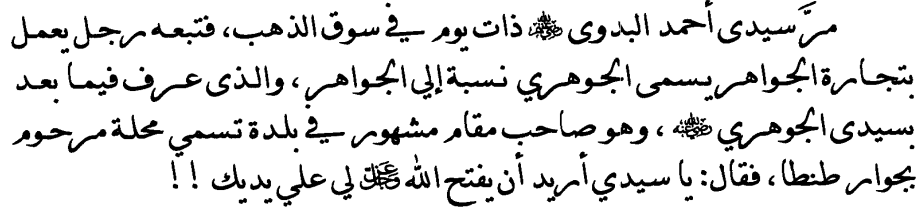 مرَّ سيدى أحمد البدوى رضي الله عنه ذات يوم في سوق الذهب، فتبعه رجل يعمل
بتجارة الجواهر يسمى الجوهري نسبة إلي الجواهر، والذى عرف فيما بعد
بسيدى الجوهري رضي الله عنه، وهو صاحب مقام مشهور في بلدة تسمي محلة مرحوم
بجوار طنطا، فقال: يا سيدي أريد أن يفتح الله عز وجل لي علي يديك !!